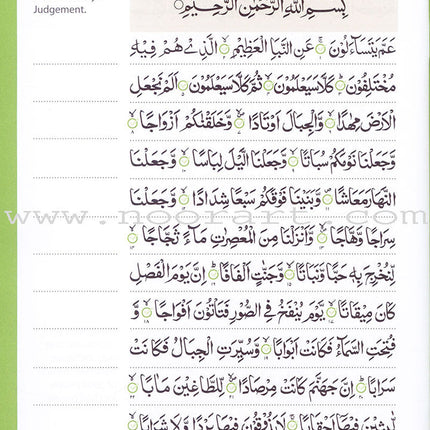 Judgement.
بِسْمِ اللّٰهِ الرَّحْمٰنِ الرَّحِيْمِ
عَمَّ يَتَسَآءَلُوْنَ ۝ عَنِ النَّبَاِ الْعَظِيْمِ ۝ الَّذِيْ هُمْ فِيْهِ
مُخْتَلِفُوْنَ ۝ كَلَّا سَيَعْلَمُوْنَ ۝ ثُمَّ كَلَّا سَيَعْلَمُوْنَ ۝ اَلَمْ نَجْعَلِ
الْاَرْضَ مِهٰدًا ۝ وَّالْجِبَالَ اَوْتَادًا ۝ وَّخَلَقْنٰكُمْ اَزْوَاجًا ۝
وَّجَعَلْنَا نَوْمَكُمْ سُبَاتًا ۝ وَّجَعَلْنَا الَّيْلَ لِبَاسًا ۝ وَّجَعَلْنَا
النَّهَارَ مَعَاشًا ۝ وَّبَنَيْنَا فَوْقَكُمْ سَبْعًا شِدَادًا ۝ وَّجَعَلْنَا
سِرَاجًا وَّهَّاجًا ۝ وَّاَنْزَلْنَا مِنَ الْمُعْصِرٰتِ مَآءً ثَجَّاجًا ۝
لِّنُخْرِجَ بِهٖ حَبًّا وَّنَبَاتًا ۝ وَّجَنّٰتٍ اَلْفَافًا ۝ اِنَّ يَوْمَ الْفَصْلِ
كَانَ مِيْقَاتًا ۝ يَّوْمَ يُنْفَخُ فِى الصُّوْرِ فَتَاْتُوْنَ اَفْوَاجًا ۝ وَّ
فُتِحَتِ السَّمَآءُ فَكَانَتْ اَبْوَابًا ۝ وَّسُيِّرَتِ الْجِبَالُ فَكَانَتْ
سَرَابًا ۝ اِنَّ جَهَنَّمَ كَانَتْ مِرْصَادًا ۝ لِّلطَّاغِيْنَ مَاٰبًا ۝
لّٰبِثِيْنَ فِيْهَآ اَحْقَابًا ۝ لَا يَذُوْقُوْنَ فِيْهَا بَرْدًا وَّلَا شَرَابًا ۝
www.noorart.com